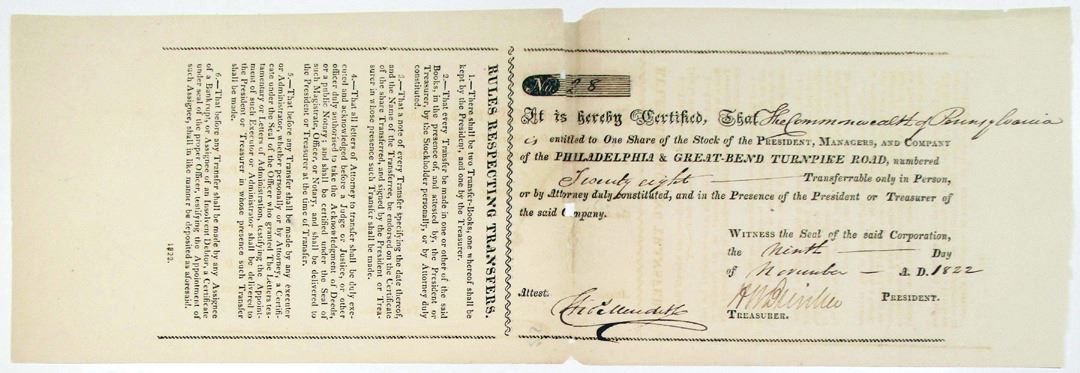 No. 28
It is hereby Certified, That The Commonwealth of Pennsylvania
is entitled to One Share of the Stock of the PRESIDENT, MANAGERS, AND COMPANY
of the PHILADELPHIA & GREAT-BEND TURNPIKE ROAD, numbered
Twenty eight Transferrable only in Person,
or by Attorney duly constituted, and in the Presence of the President or Treasurer of
the said Company.
WITNESS the Seal of the said Corporation,
the Ninth Day
of November A. D. 1822
PRESIDENT.
Attest.
Meredith
TREASURER.
RULES RESPECTING TRANSFERS.
1.—There shall be two Transfer-Books, one whereof shall be
kept by the President, and one by the Treasurer.
2.—That every Transfer be made in one or other of the said
Books, in the presence of, and attested by, the President or
Treasurer, by the Stockholder personally, or by Attorney duly
constituted.
3.—That a note of every Transfer specifying the date thereof,
and the Name of the Transferree, be endorsed on the Certificate
of the share Transferred, and signed by the President or Trea-
surer in whose presence such Transfer shall be made.
4.—That all letters of Attorney to transfer shall be duly exe-
cuted and acknowledged before a Judge or Justice, or other
officer duly authorised to take the Acknowledgment of Deeds,
or a public Notary; and shall be certified under the Seal of
such Magistrate, Officer, or Notary, and shall be delivered to
the President or Treasurer at the time of Transfer.
5.—That before any Transfer shall be made by any executer
or Administrator, whether personally or by Attorney, a Certifi-
cate under the Seal of the Officer who granted The Letters tes-
tamentary or Letters of Administration, testifying the Appoint-
ment of such Executor or Administrator shall be delivered to
the President or Treasurer in whose presence such Transfer
shall be made.
6.—That before any Transfer shall be made by any Assignee
of a Bankrupt, or Assignee of an Insolvent Debtor, a Certificate
under seal of the proper Officer, testifying the Appointment of
such Assignee, shall in like manner be deposited as aforesaid.
1822.